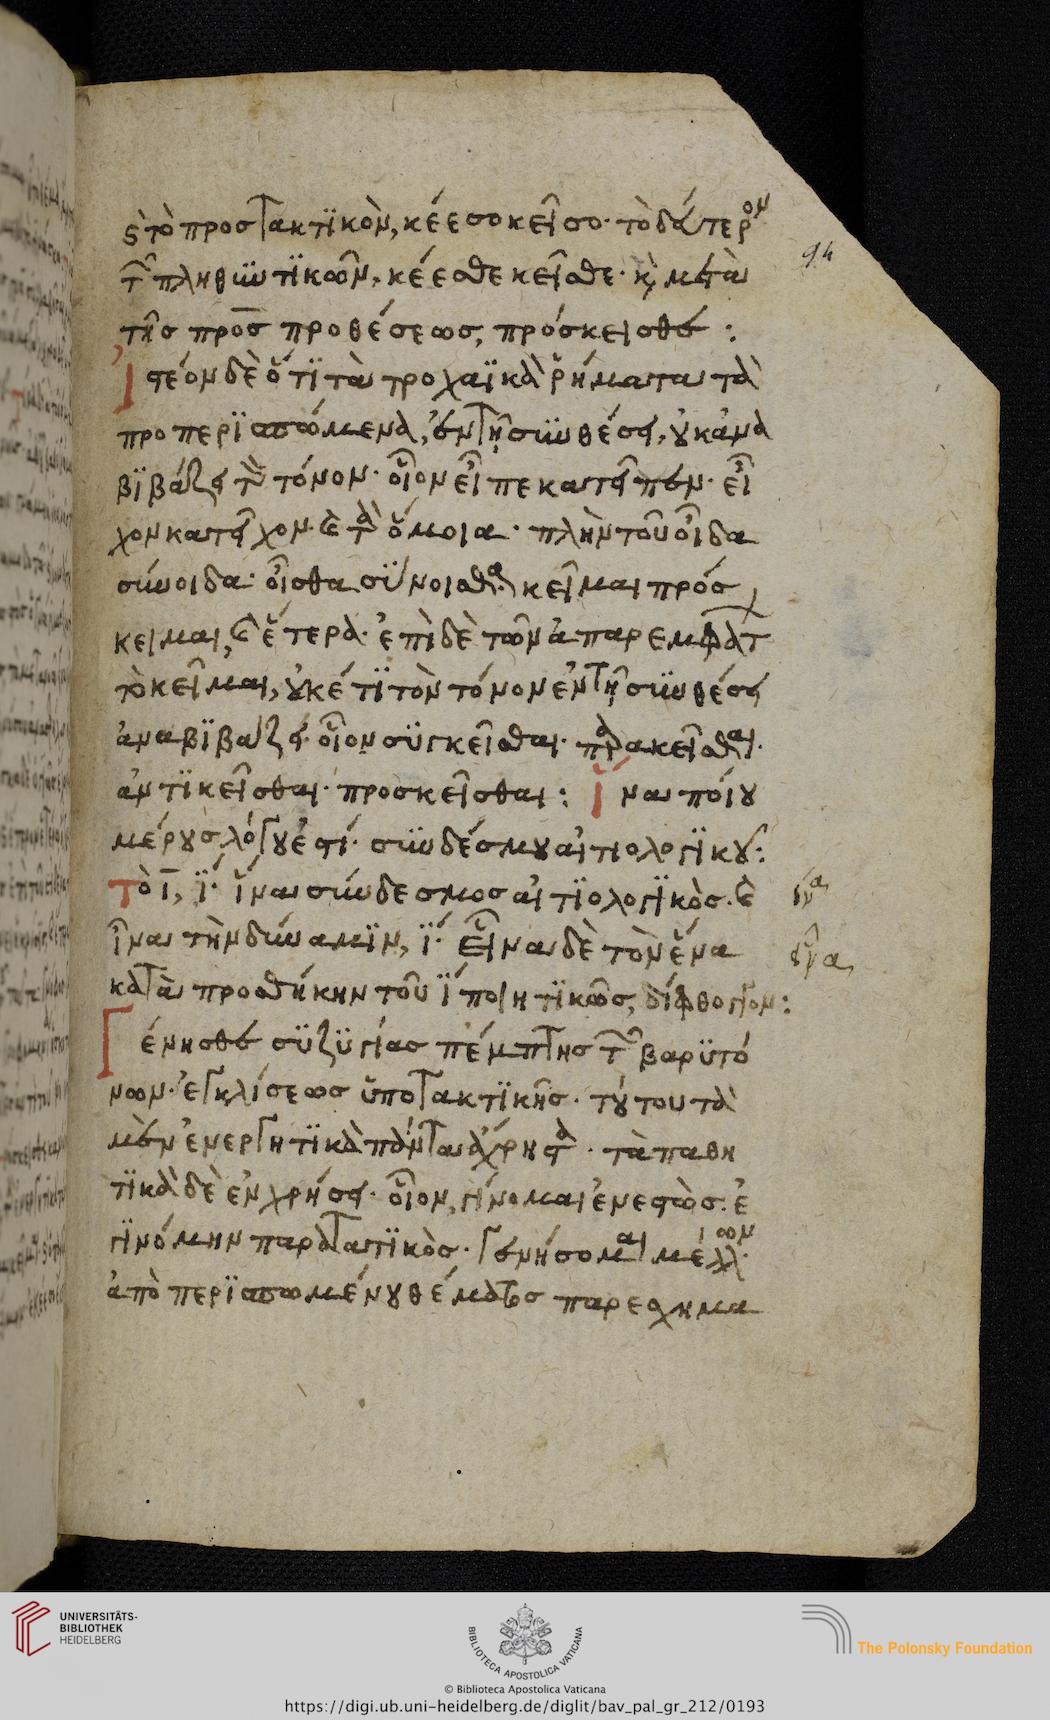 ς τὸ προστακτϊκὸν, κέεσο κεῖσο· τὸ δεύτερον
τῶν πληθϋντϊκῶν, κέεσθε κεῖσθε· κὶ μετὰ
τῆς πρὸς προθέσεως, πρόσκεισθε :
Ἰστέον δὲ ὅτϊ τὰ τροχαϊκὰ ῥήματα τὰ
προπερϊσπώμενα, ἐν τῆ σϋνθέσει, οὐκ ἀνα
βϊβάζει τὸν τόνον· οἷον εἶπε κατεῖπεν· εἶ
χον κατεῖχον· καὶ τὰ ὅμοια· πλὴν τοῦ οἶδα
σύνοιδα· οἶσθα σΰνοισθα· κεῖμαι πρός
κειμαι, καὶ ἕτερα· ἐπὶ δὲ τῶν ἀπαρεμφάτ
τὸ κεῖμαι, οὐκέτϊ τὸν τόνον ἐν τῆ σϋνθέσει
ἀναβϊβάζει· οἷον σϋγκεῖσθαι· παρακεῖσθαι·
ἀντϊκεῖσθαι· προσκεῖσθαι : Ἵνα ποίου
μέρους λόγου ἐστί· σϋνδέσμου αἰτιολογϊκοῦ :
Τὸ ι, ϊ· ἵνα σύνδεσμος αἰτϊολογϊκὸς· καὶ
ἵνα τὴν δύναμϊν, ϊ· εἷνα δὲ τὸν ἕνα
κατὰ προσθήκην τοῦ ϊ ποιητϊκῶς, δίφθογγον :
Γένησθε σϋζϋγίας πέμπτης τῶν βαρϋτό
νων· ἐγκλίσεως ὑποτακτϊκῆς· τούτου τὰ
μὲν ἐνεργητϊκὰ πάντα ἄχρηστα· τὰ παθη
τϊκὰ δὲ ἐν χρήσει· οἷον, γίνομαι ἐνεστὼς· ἐ
γϊνόμην παρατατϊκὸς· γενήσομαι μέλλων·
ἀπὸ περϊσπωμένου θέματος παρεσχημα
94
ἵνα
εἷνα
UNIVERSITÄTS-
BIBLIOTHEK
HEIDELBERG
BIBLIOTECA APOSTOLICA VATICANA
The Polonsky Foundation
© Biblioteca Apostolica Vaticana
https://digi.ub.uni-heidelberg.de/diglit/bav_pal_gr_212/0193